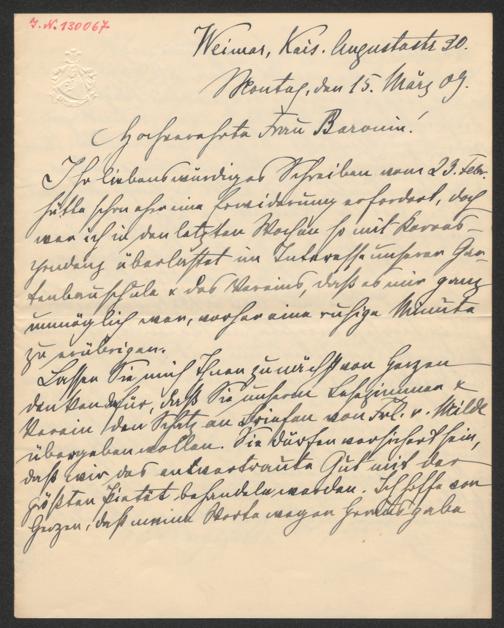 J. N. 130067
Weimar, Kais. Augustastr 30.
Montag, den 15. März 09.
Hochverehrte Frau Baronin!
Ihr liebenswürdiges Schreiben vom 23. Febr.
hätte schon eher eine Erwiderung erfordert, doch
war ich in den letzten Wochen so mit Korres-
pondenz überlastet im Interesse unserer Gar-
tenbauschule & des Vereins, daß es mir ganz
unmöglich war, vorher eine ruhige Minute
zu erübrigen.
Lassen Sie mich Ihnen zunächst von Herzen
danken dafür, daß Sie unserem Lesezimmer &
Verein den Schatz an Briefen von Frl. v. Milde
übergeben wollen. Sie dürfen versichert sein,
daß wir das anvertraute Gut mit der
größten Pietät behandeln werden. Ich hoffe von
Herzen, daß meine Worte wegen Herausgabe